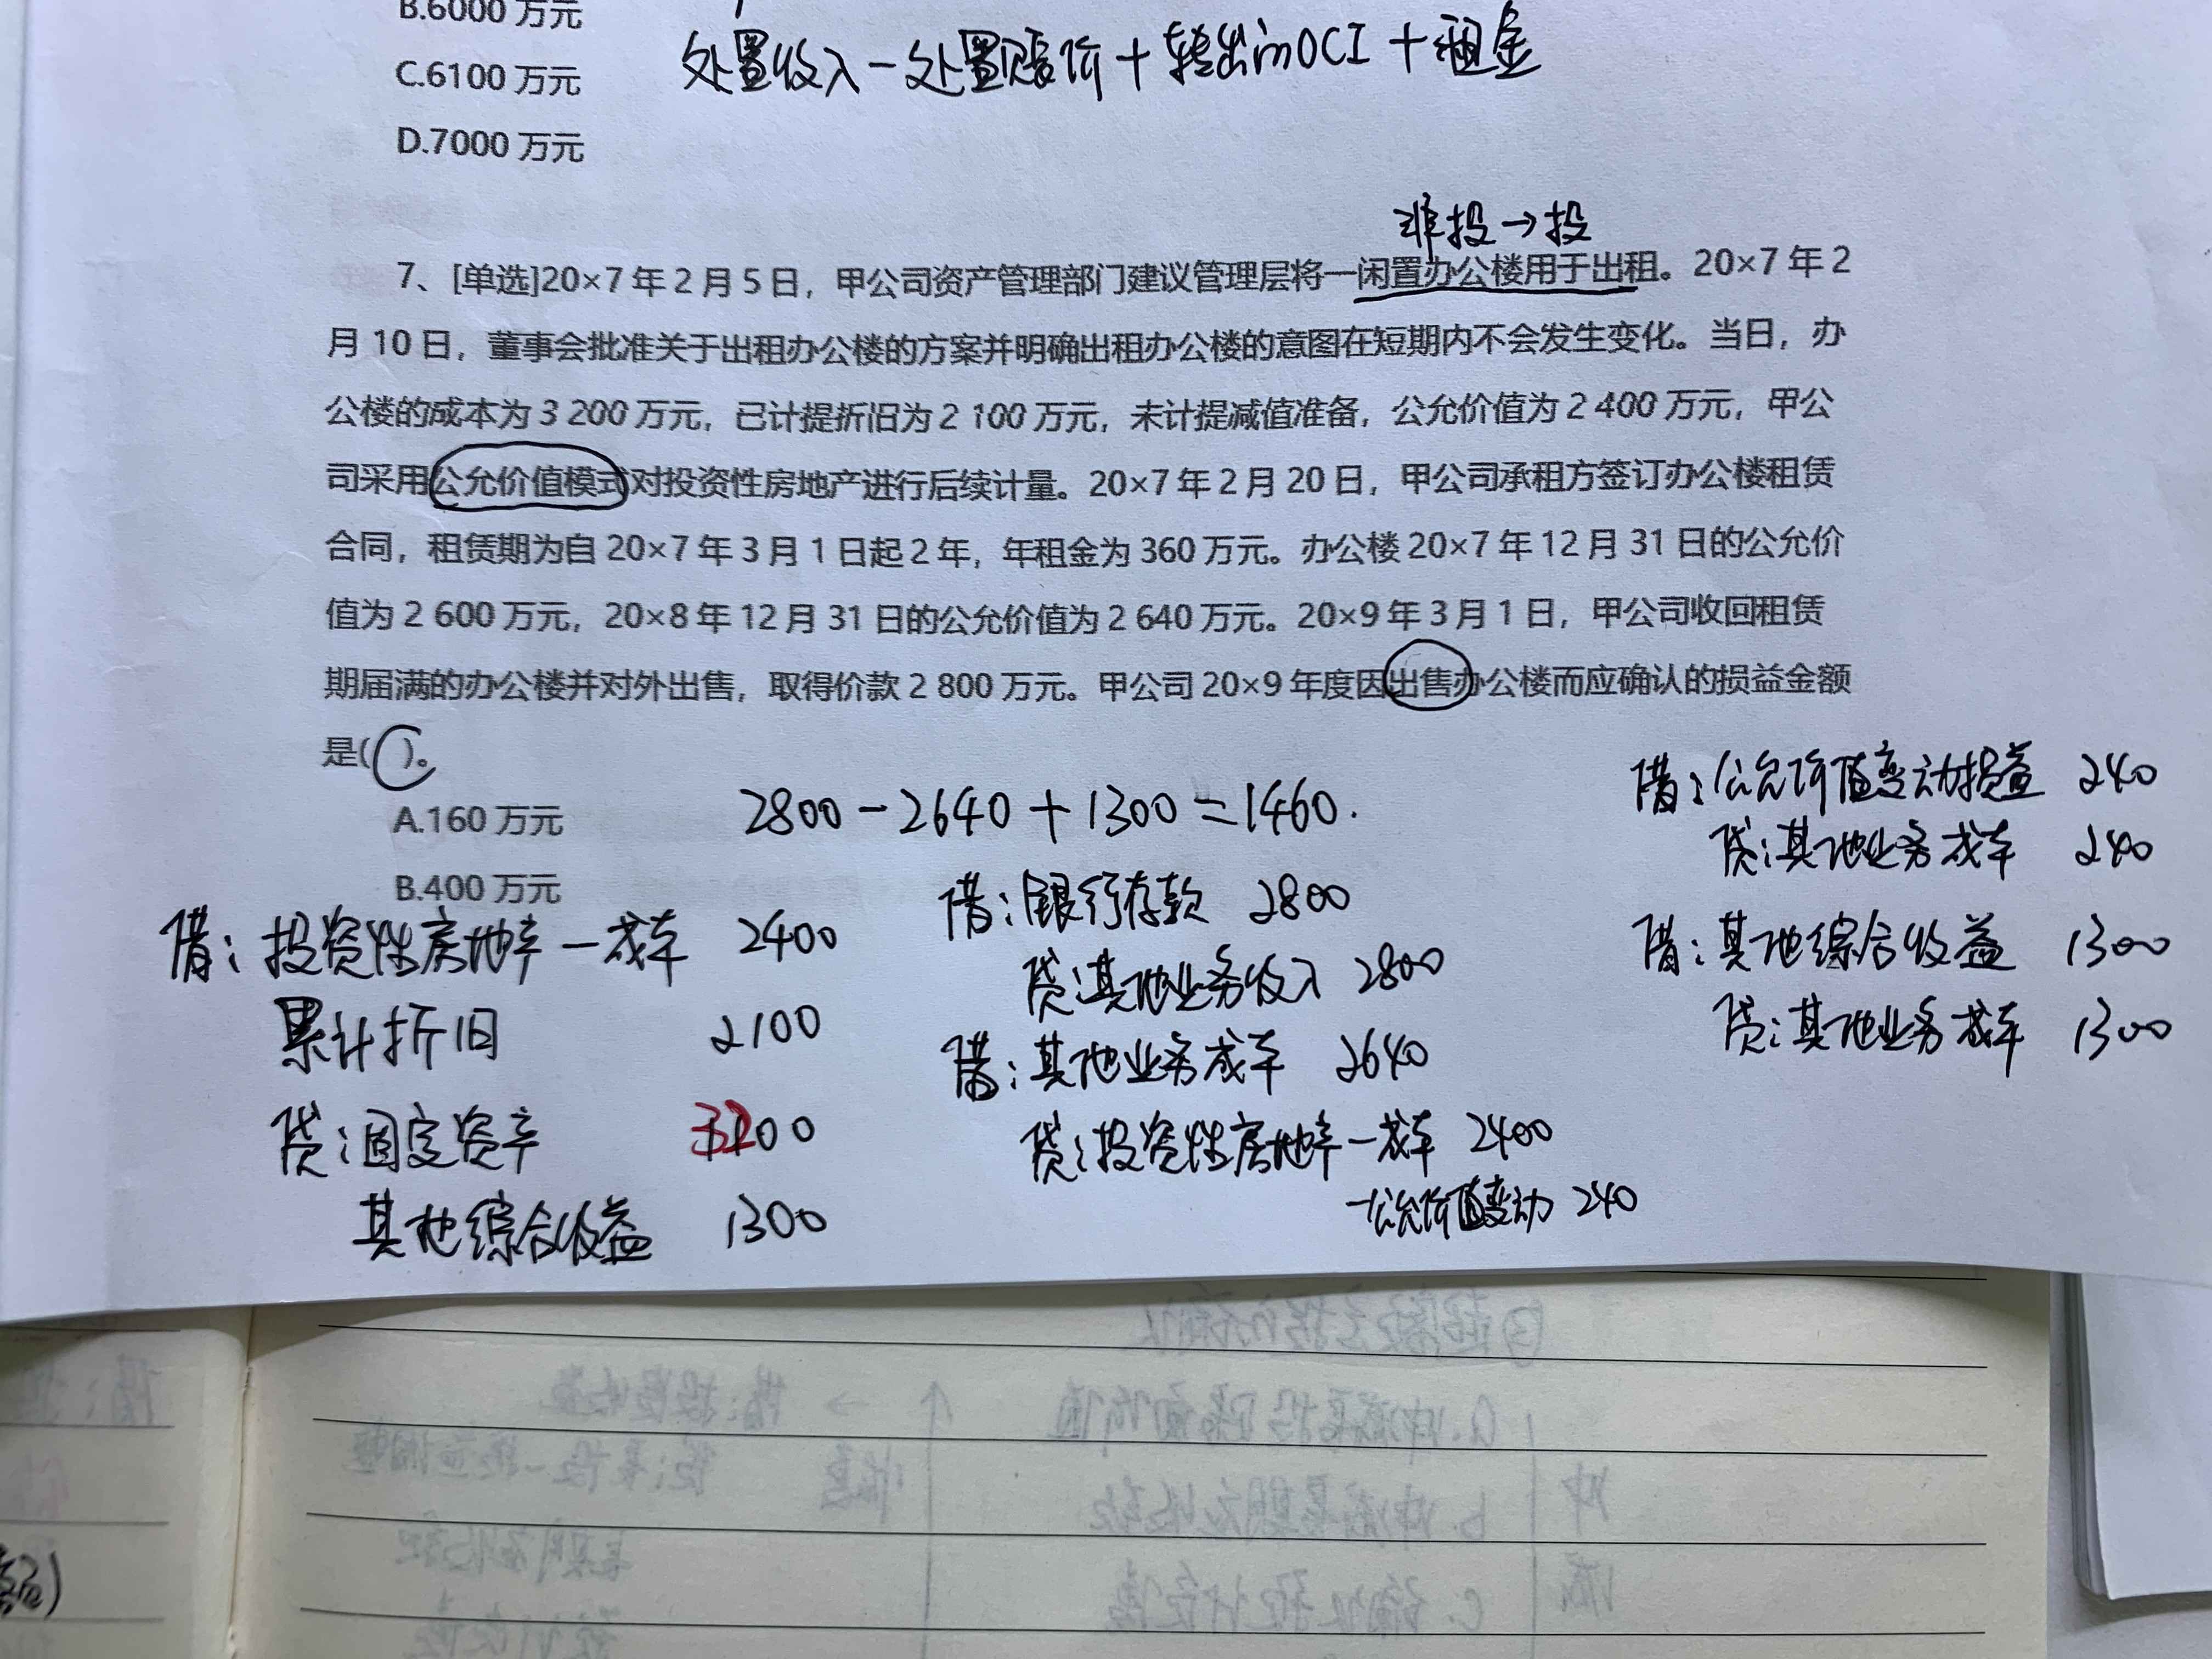 B.6000 万元
处置收入-处置账价+转出的OCI+租金
C.6100 万元
D.7000 万元
非投→投
7、[单选]20×7 年 2 月 5 日，甲公司资产管理部门建议管理层将一闲置办公楼用于出租。20×7 年 2
月 10 日，董事会批准关于出租办公楼的方案并明确出租办公楼的意图在短期内不会发生变化。当日，办
公楼的成本为 3 200 万元，已计提折旧为 2 100 万元，未计提减值准备，公允价值为 2 400 万元，甲公
司采用公允价值模式对投资性房地产进行后续计量。20×7 年 2 月 20 日，甲公司承租方签订办公楼租赁
合同，租赁期为自 20×7 年 3 月 1 日起 2 年，年租金为 360 万元。办公楼 20×7 年 12 月 31 日的公允价
值为 2 600 万元，20×8 年 12 月 31 日的公允价值为 2 640 万元。20×9 年 3 月 1 日，甲公司收回租赁
期届满的办公楼并对外出售，取得价款 2 800 万元。甲公司 20×9 年度因出售办公楼而应确认的损益金额
是( )。
A.160 万元
2800-2640+1300=1460.
B.400 万元
借：投资性房地产-成本 2400
累计折旧 2100
贷：固定资产 3200
其他综合收益 1300
借：银行存款 2800
贷：其他业务收入 2800
借：其他业务成本 2640
贷：投资性房地产-成本 2400
-公允价值变动 240
借：公允价值变动损益 240
贷：其他业务成本 240
借：其他综合收益 1300
贷：其他业务成本 1300